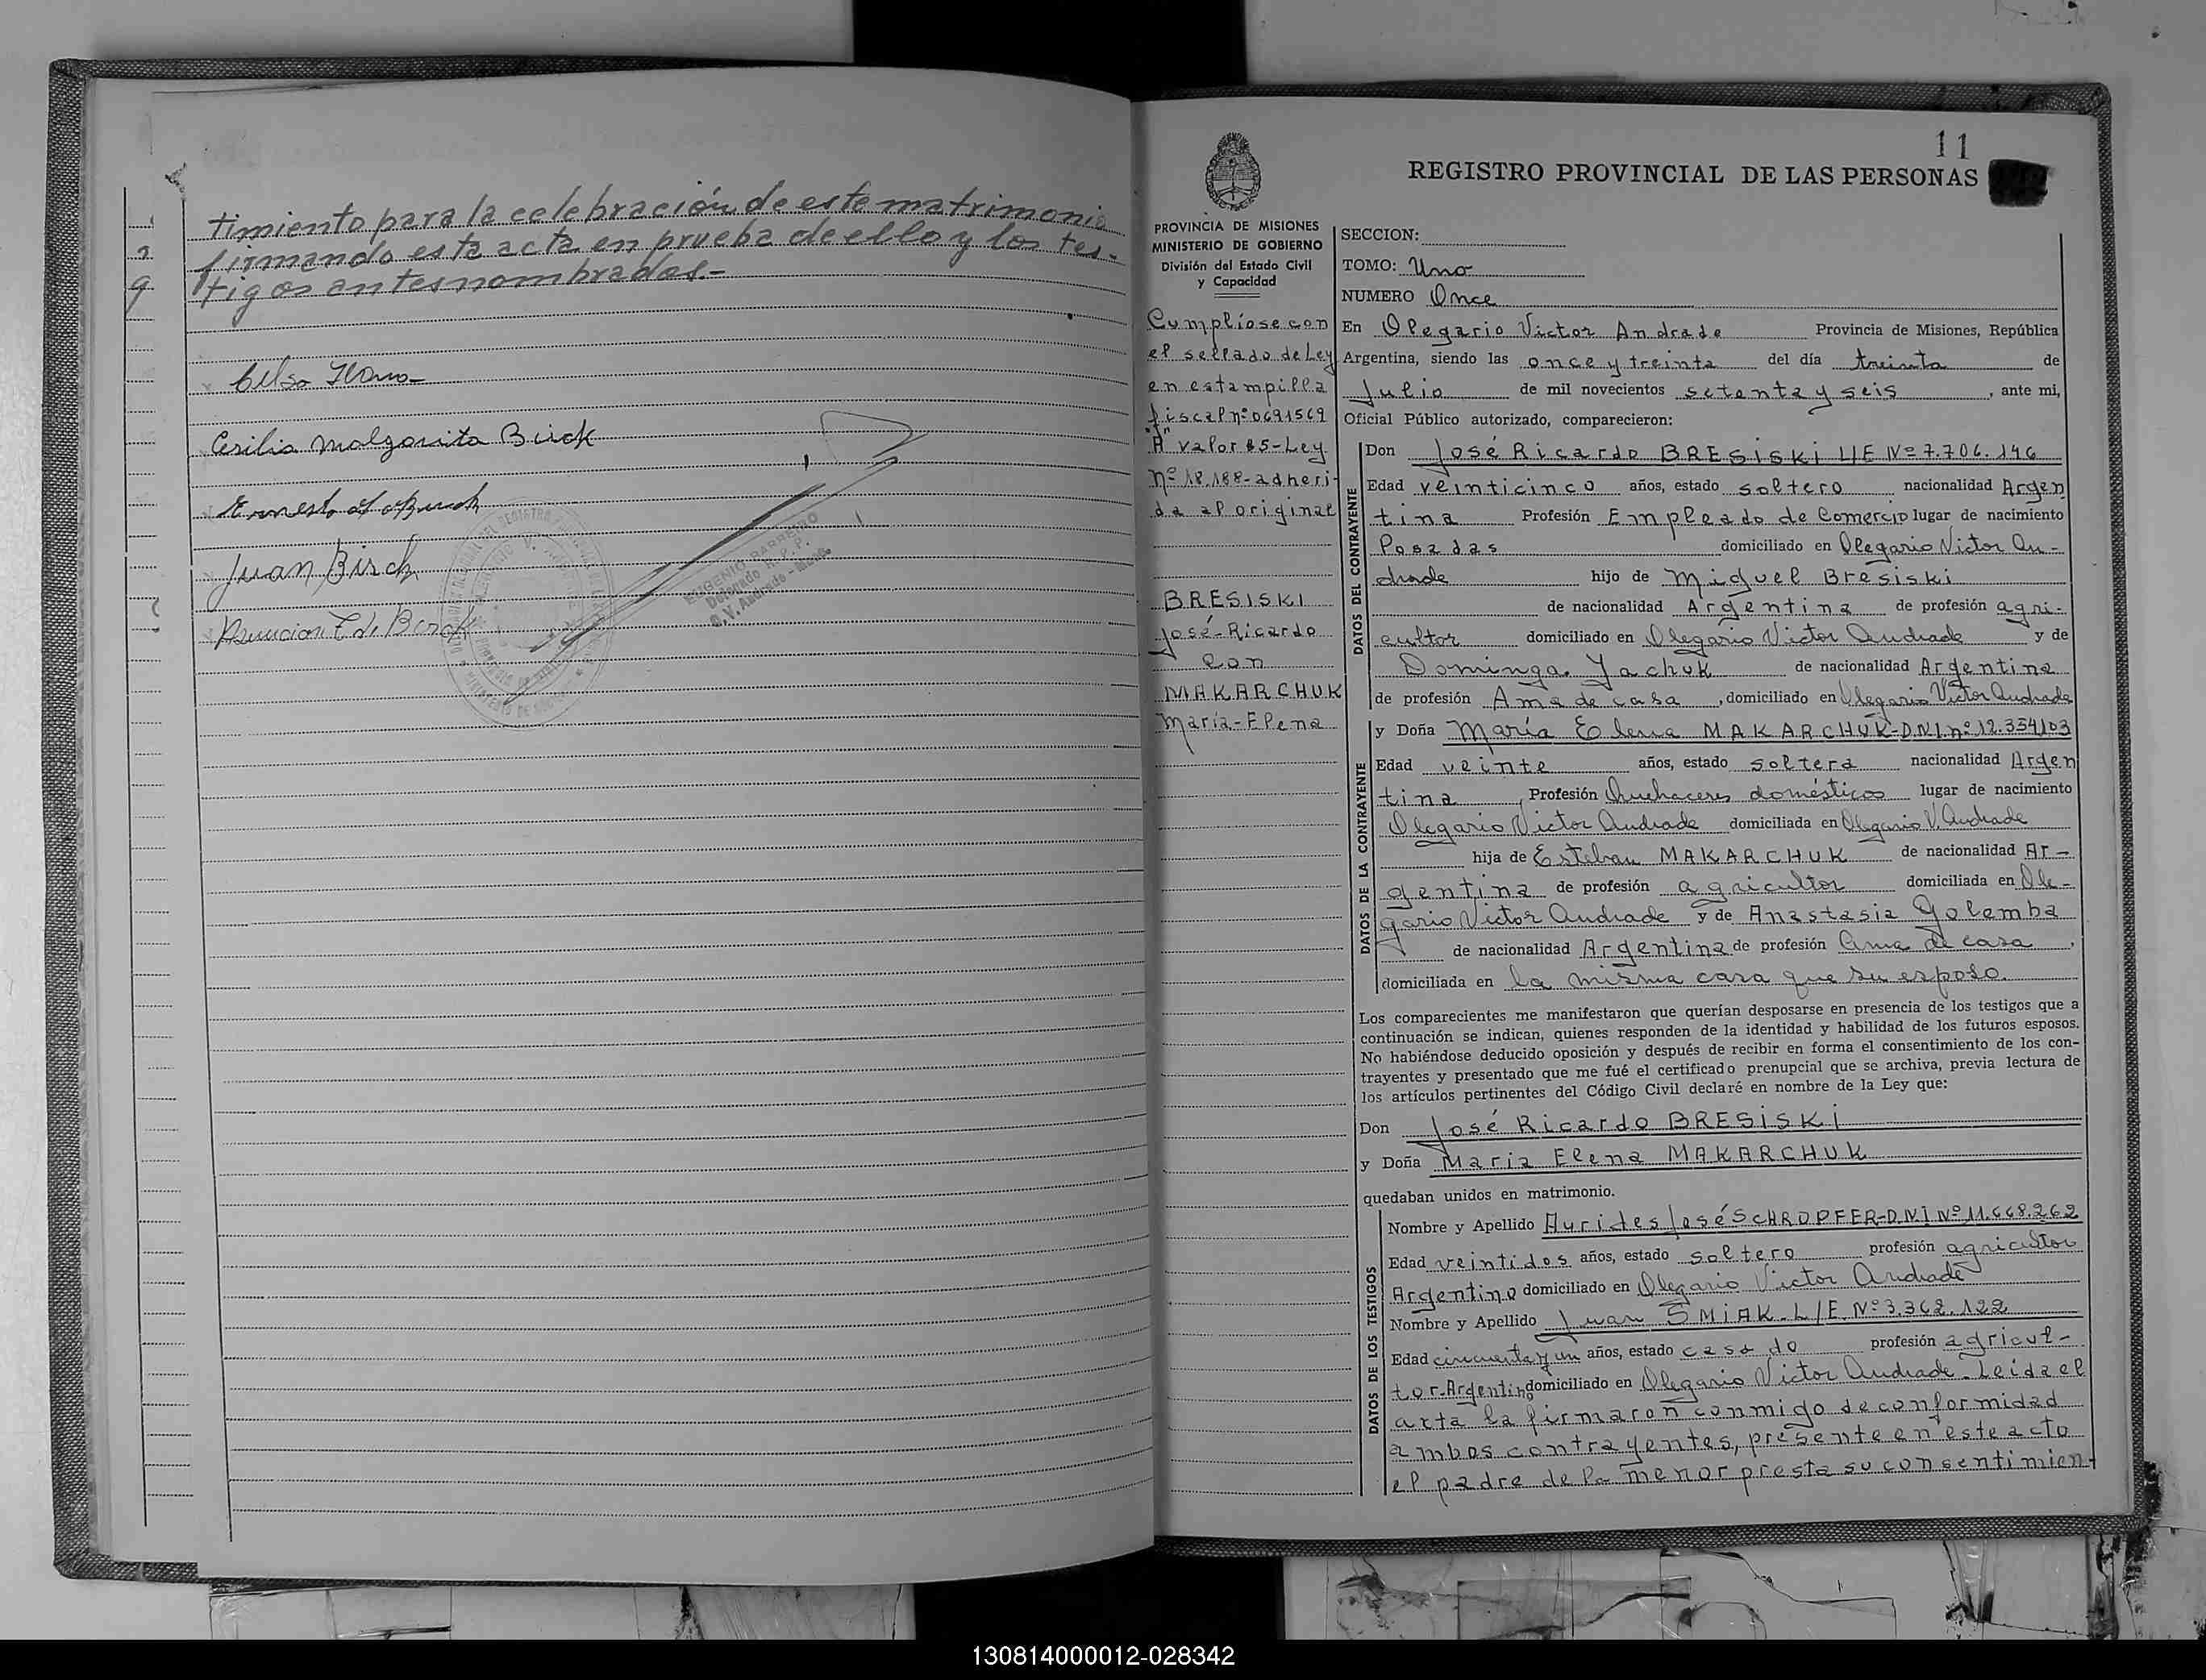 timiento para la celebración de este matrimonio
firmando esta acta en prueba de ello y los tes-
tigos antes nombrados.-
Cesilia Malgarita Birck
Juan Birck
EUGENIO BARRERO
Delegado R.P.P.
O.V. Andrade - Mnes.
11
REGISTRO PROVINCIAL DE LAS PERSONAS
PROVINCIA DE MISIONES
MINISTERIO DE GOBIERNO
División del Estado Civil
y Capacidad
Cumplíose con
el sellado de Ley
en estampilla
fiscal nº 0691569
"A" valor $5-Ley
nº 18.188-adheri-
da al original
BRESISKI
José-Ricardo
con
MAKARCHUK
María-Elena
SECCION:
TOMO: Uno
NUMERO Once
En Olegario Victor Andrade Provincia de Misiones, República
Argentina, siendo las once y treinta del día treinta de
Julio de mil novecientos setenta y seis, ante mi,
Oficial Público autorizado, comparecieron:
DATOS DEL CONTRAYENTE
Don José Ricardo BRESISKI L/E Nº 7.706.146
Edad veinticinco años, estado soltero nacionalidad Argen
tina Profesión Empleado de Comercio lugar de nacimiento
Posadas domiciliado en Olegario Victor An-
drade hijo de Miguel Bresiski
de nacionalidad Argentina de profesión agri-
cultor domiciliado en Olegario Victor Andrade y de
Dominga Yachuk de nacionalidad Argentina
de profesión Ama de casa, domiciliado en Olegario Victor Andrade
DATOS DE LA CONTRAYENTE
y Doña María Elena MAKARCHUK-DNI nº 12.354.103
Edad veinte años, estado soltera nacionalidad Argen
tina, Profesión Quehaceres domésticos lugar de nacimiento
Olegario Victor Andrade domiciliada en Olegario V. Andrade
hija de Esteban MAKARCHUK de nacionalidad Ar-
gentina de profesión agricultor domiciliada en Ole-
gario Victor Andrade y de Anastasia Golemba
de nacionalidad Argentina de profesión Ama de casa,
domiciliada en la misma casa que su esposo.
Los comparecientes me manifestaron que querían desposarse en presencia de los testigos que a
continuación se indican, quienes responden de la identidad y habilidad de los futuros esposos.
No habiéndose deducido oposición y después de recibir en forma el consentimiento de los con-
trayentes y presentado que me fué el certificado prenupcial que se archiva, previa lectura de
los artículos pertinentes del Código Civil declaré en nombre de la Ley que:
Don José Ricardo BRESISKI
y Doña María Elena MAKARCHUK
quedaban unidos en matrimonio.
DATOS DE LOS TESTIGOS
Nombre y Apellido Aurides José SCHROPFER-DNI Nº 11.668.262
Edad veintidos años, estado soltero profesión agricultor
Argentino domiciliado en Olegario Victor Andrade
Nombre y Apellido Juan SMIAK-L/E Nº 3.362.122
Edad cincuenta y un años, estado casado profesión agricul-
tor-Argentino domiciliado en Olegario Victor Andrade-Leída el
acta la firmaron conmigo de conformidad
ambos contrayentes, presente en este acto
el padre de la menor presta su consentimien-
130814000012-028342